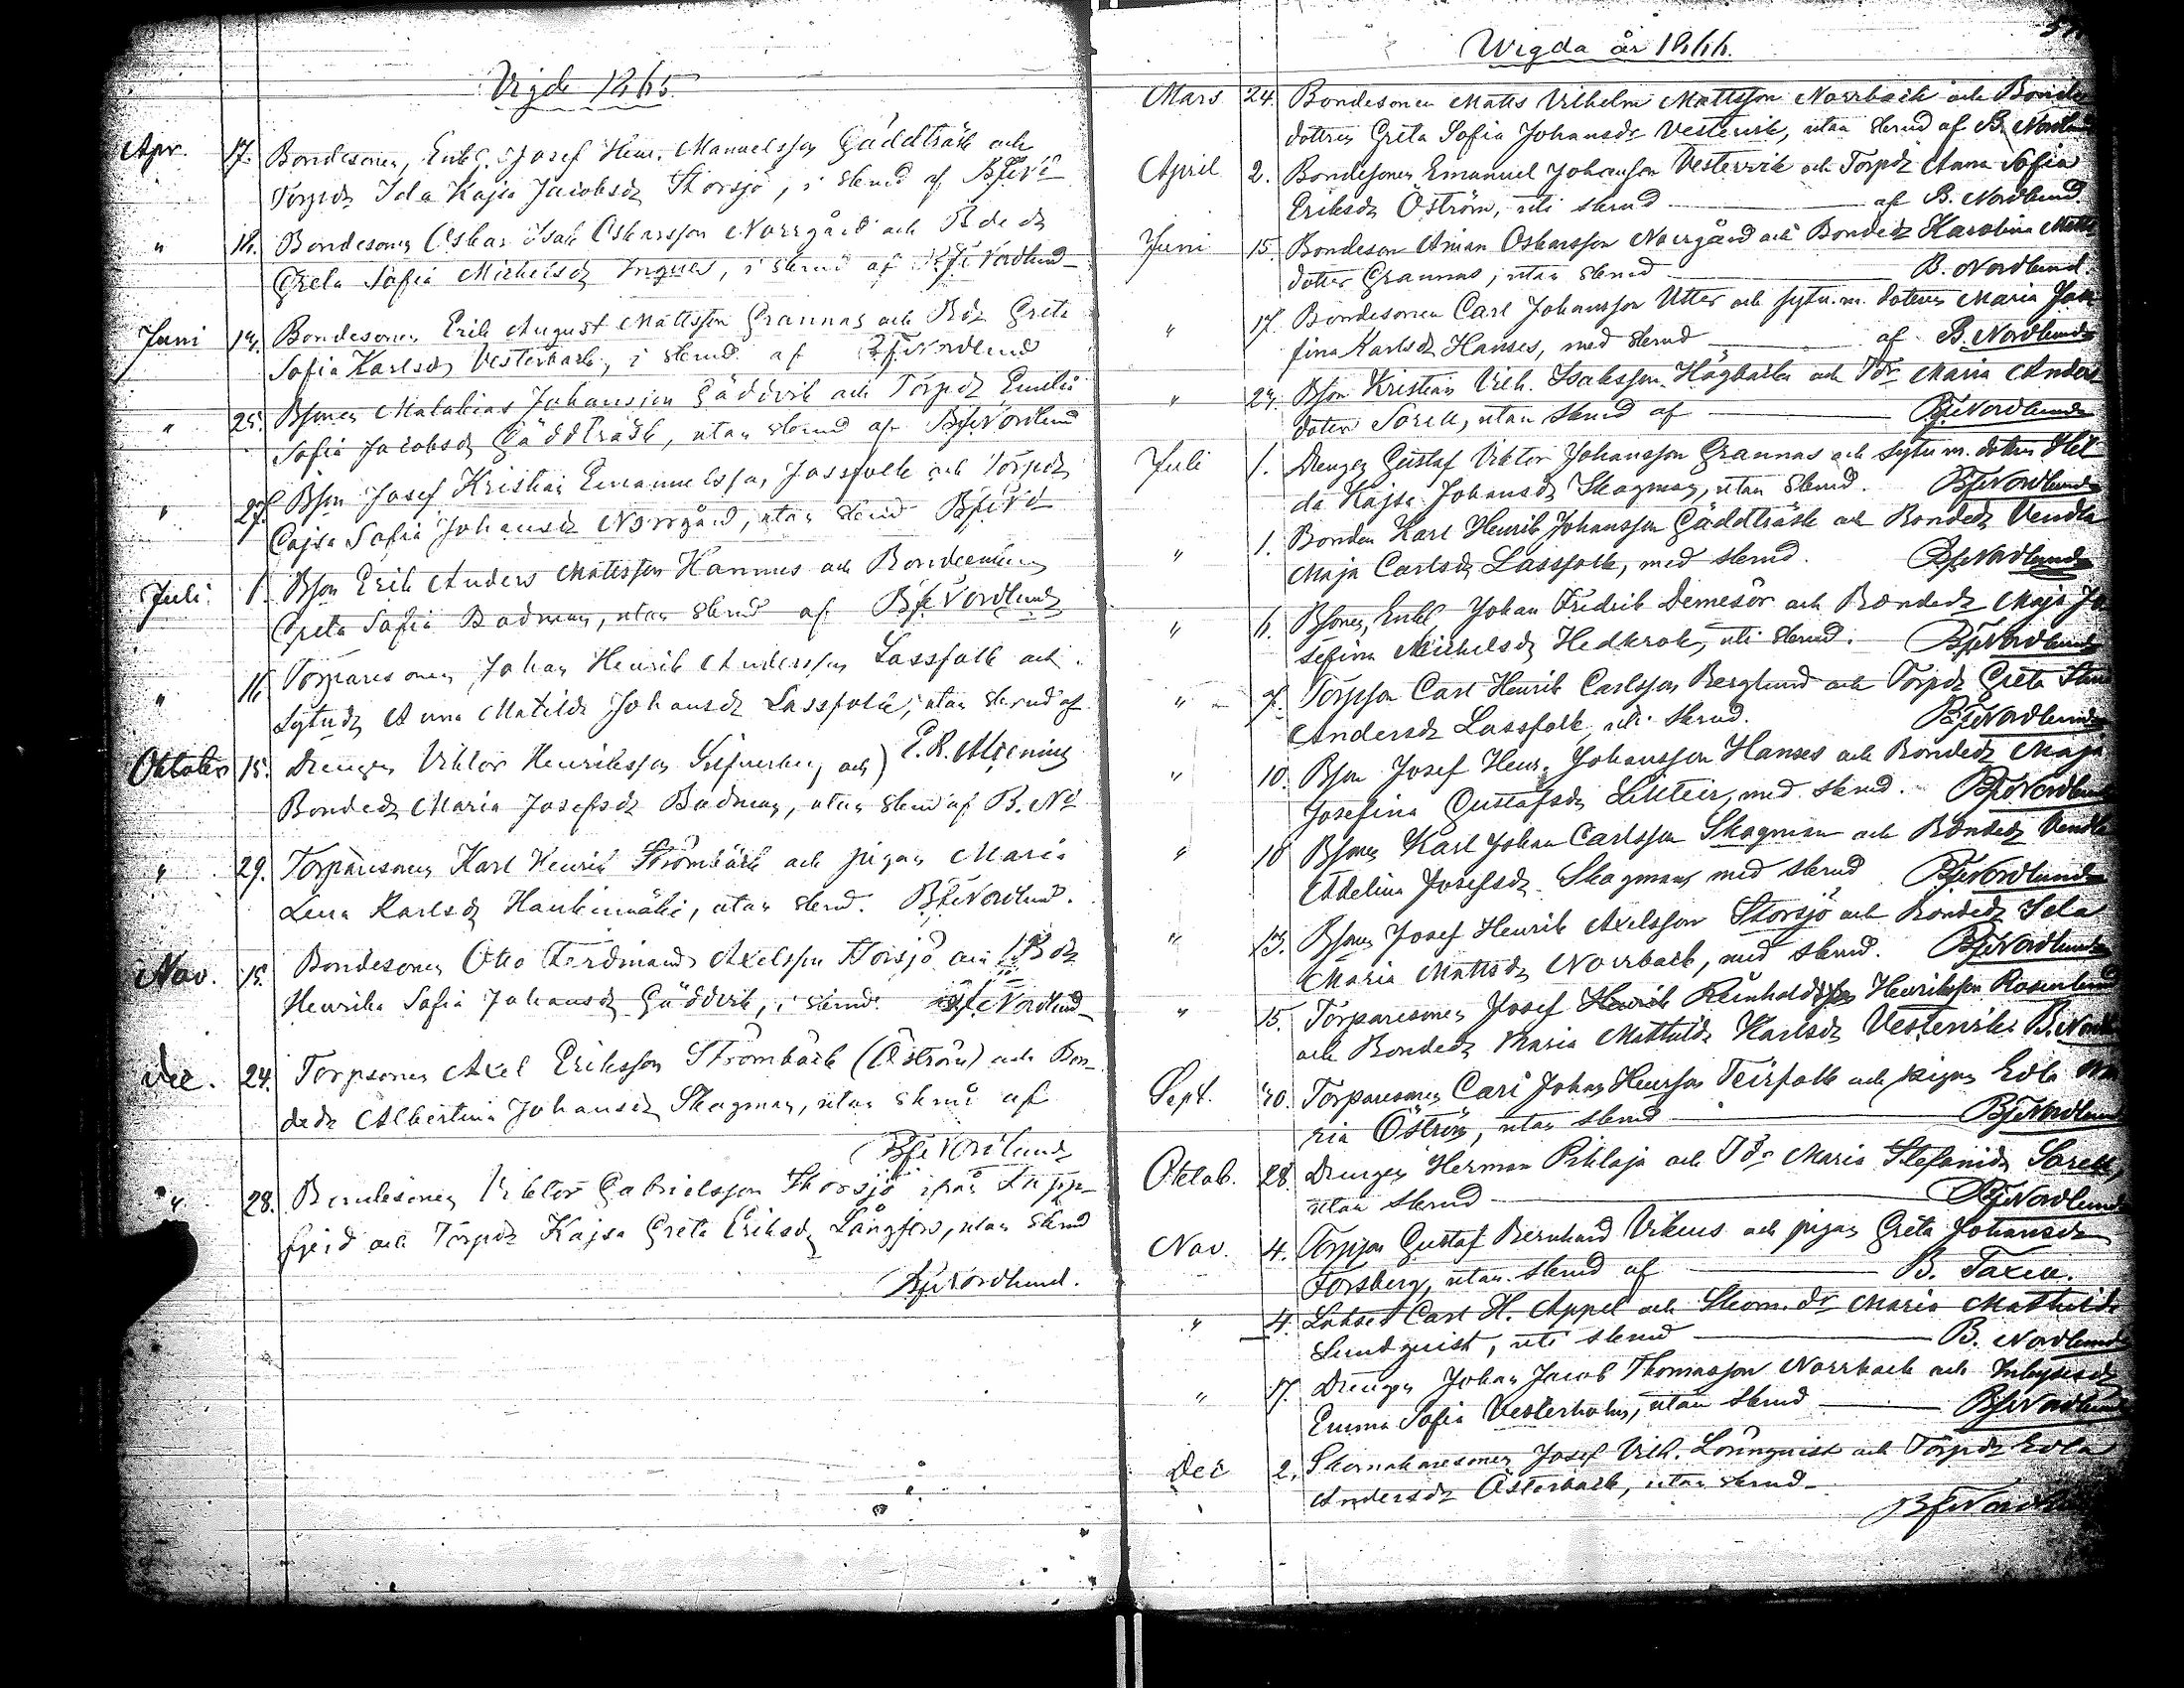 Vigde 1865
Apr. 17. Bondesonen, Enkl. Josef Henr. Manuelsson Gäddträsk och
Torpdr Ida Kajsa Jacobsdr Storsjö, i skrud af
" 18. Bondesonen Oskar Isak Oskarsson Norrgård och Bdedr
Greta Sofia Michelsdr Ingves, i skrud af Nordlund
Juni Bondesonen Erik August Mattsson Grannas och Bdr Greta
Sofia Karlsdr Vesterback, i skrud af Nordlund
" 25. Bsonen Matahias Johansson Gäddvik och Torpdr Emilia
Sofia Jacobsdr Gäddträsk, utan skrud af Nordlund
" 27. Bson Josef Kristian Emanuelsson Jassfolk och Torpdr
Cajsa Sofia Johansdr Norrgård, utan skrud
Juli 1. Bson Erik Anders Mattsson Hannus och Bondeenkan
Greta Sofia Badman, utan skrud af Nordlund
" 16 Torparesonen Johan Henrik Andersson Lassfolk och
Sytndr Anna Matilda Johansdr Lassfolk, utan skrud af
Oktober 15. Drengen Viktor Henriksson och) E. R. Alcenius
Bondedr Maria Josefsdr Badman, utan skrud af B. Nd
" 29. Torparesonen Karl Henrik Strömbäck och pigan Maria
Lena Karlsdr Hankinmäki, utan skrud. Nordlund.
Nov. 15. Bondesonen Otto Ferdinand Axelsson Storsjö och Bdr
Henrika Sofia Johansdr Gäddvik, i skrud. Nordlund
Dec. 24. Torpsonen Axel Eriksson Strömbäck (Öström) och Bon-
dedr Albertina Johansdr Skagman, utan skrud af
Nordlund
" 28. Bondesonen Viktor Gabrielsson Storsjö ifrån Lapp-
fjerd och Torpdr Kajsa Greta Eriksdr Långfors, utan skrud
Nordlund.
Wigda år 1866.
Mars 24. Bondesonen Matts Vilhelm Mattsson Norrback och Bonde
dottren Greta Sofia Johansdr Vestervik, utan skrud af B. Nordlund
April 2. Bondesonen Emanuel Johansson Vestervik och Torpdr Anna Sofia
Eriksdr Öström, uti skrud af B. Nordlund.
Juni 15. Bondeson Aman Oskarsson Norrgård och Bondedr Karolina Matts
dotter Grannas, utan skrud B. Nordlund.
" 17. Bondesonen Carl Johansson Utter och sytn.m. dottren Maria Jose
fina Karlsdr Hanses, med skrud af B. Nordlund
" Bson Kristian Vilh. Isaksson Högbacka och Tdr Maria Anders
dotter Sorell, utan skrud af Nordlund
Juli 1. Drengen Gustaf Viktor Johansson Grannas och sytn m. dottren Hil
da Kajsa Johansdr Skagman, utan skrud. Nordlund
" 1. Bonden Karl Henrik Johansson Gäddträsk och Bondedr Vendla
Maja Carlsdr Lassfolk, med skrud. Nordlund
" 6. Bsonen, Enkl. Johan Fredrik Demesör och Bondedr Maja Jo
sefina Michelsdr Hedkrok, uti skrud. Nordlund
" Torpson Carl Henrik Carlsson Berglund och Torpdr Greta
Andersdr Lassfolk, uti skrud. Nordlund
" 10. Bson Josef Henr. Johansson Hanses och Bondedr Maja
Josefina Gustafsdr Likteir, med skrud. Nordlund
" 10 Bsonen Karl Johan Carlsson Skagman och Bondedr Vendla
Adelina Josefsdr Skagman, med skrud Nordlund
" 13. Bsonen Josef Henrik Axelsson Storsjö och Bondedr Ida
Maria Mattsdr Norrback, med skrud. Nordlund
" 15. Torparesonen Josef Henrik Reinholdsson Henriksson Rosenlund
och Bondedr Maria Mathilda Karlsdr Vestervik. B. Nordl
Sept. 30. Torparesonen Carl Johan Henrsson Teirfolk och pigan Edla Ma
ria Öström, utan skrud Nordlund
Oktob. 28. Drengen Herman Pihlaja och Tdr Maria Stefanida Sorell,
utan skrud Nordlund
Nov. 4. Torpson Gustaf Bernhard Vikus och pigan Greta Johansdr
Forsberg, utan skrud af B. Taxell.
" 4. Carl H. Appel och Skom. dr Maria Mathilda
Lundquist, uti skrud B. Nordlund
" 17. Drengen Johan Jacob Thomasson Norrback och Inhysesdr
Emma Sofia Vesterholm, utan skrud Nordlund
Dec 2. Skomakaresonen Josef Vilh. Lönnquist och Torpdr Edla
Andersdr Österback, utan skrud
Nordlund